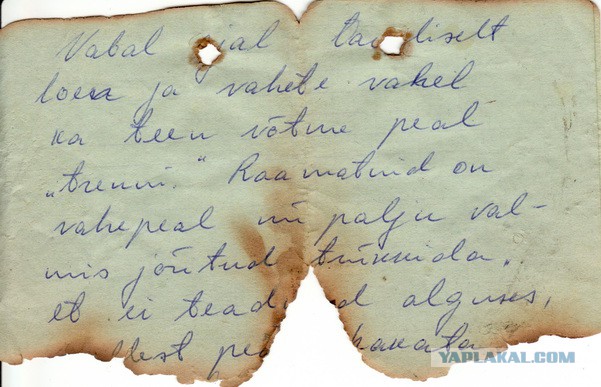 Vabal ajal tavaliselt
loen ja vahete vahel
ka teen võtme peal
„trenni." Raamatuid on
vahepeal nii palju val-
mis jõutud trükkida,
et ei teadnud alguses,
hakata
YAPLAKAL.COM